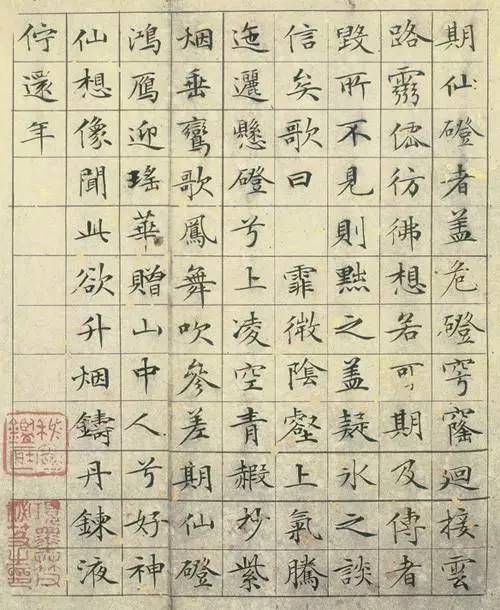 期仙磴者盖危磴穹窿迴接雲
路霛僊彷彿想若可期及傳者
毀所不見則黜之盖疑冰之談
信矣歌曰 霏微陰壑上氣騰
迤邐懸磴兮上凌空青赮杪紫
烟垂鸞歌鳳舞吹參差期仙磴
鴻鴈迎瑤華贈山中人兮好神
仙想像聞此欲升烟鑄丹鍊液
佇還年